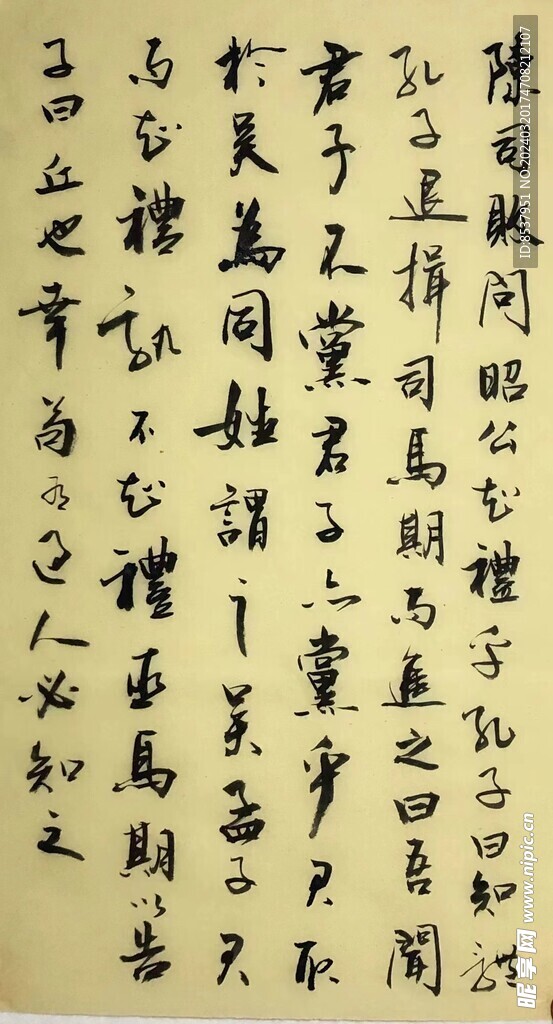 陳司敗問昭公知禮乎孔子曰知禮
孔子退揖司馬期而進之曰吾聞
君子不黨君子亦黨乎君取
於吳為同姓謂之吳孟子君
而知禮孰不知禮巫馬期以告
子曰丘也幸苟有過人必知之
ID:8537951 NO:20240320174708212107
昵享网 www.nipic.cn